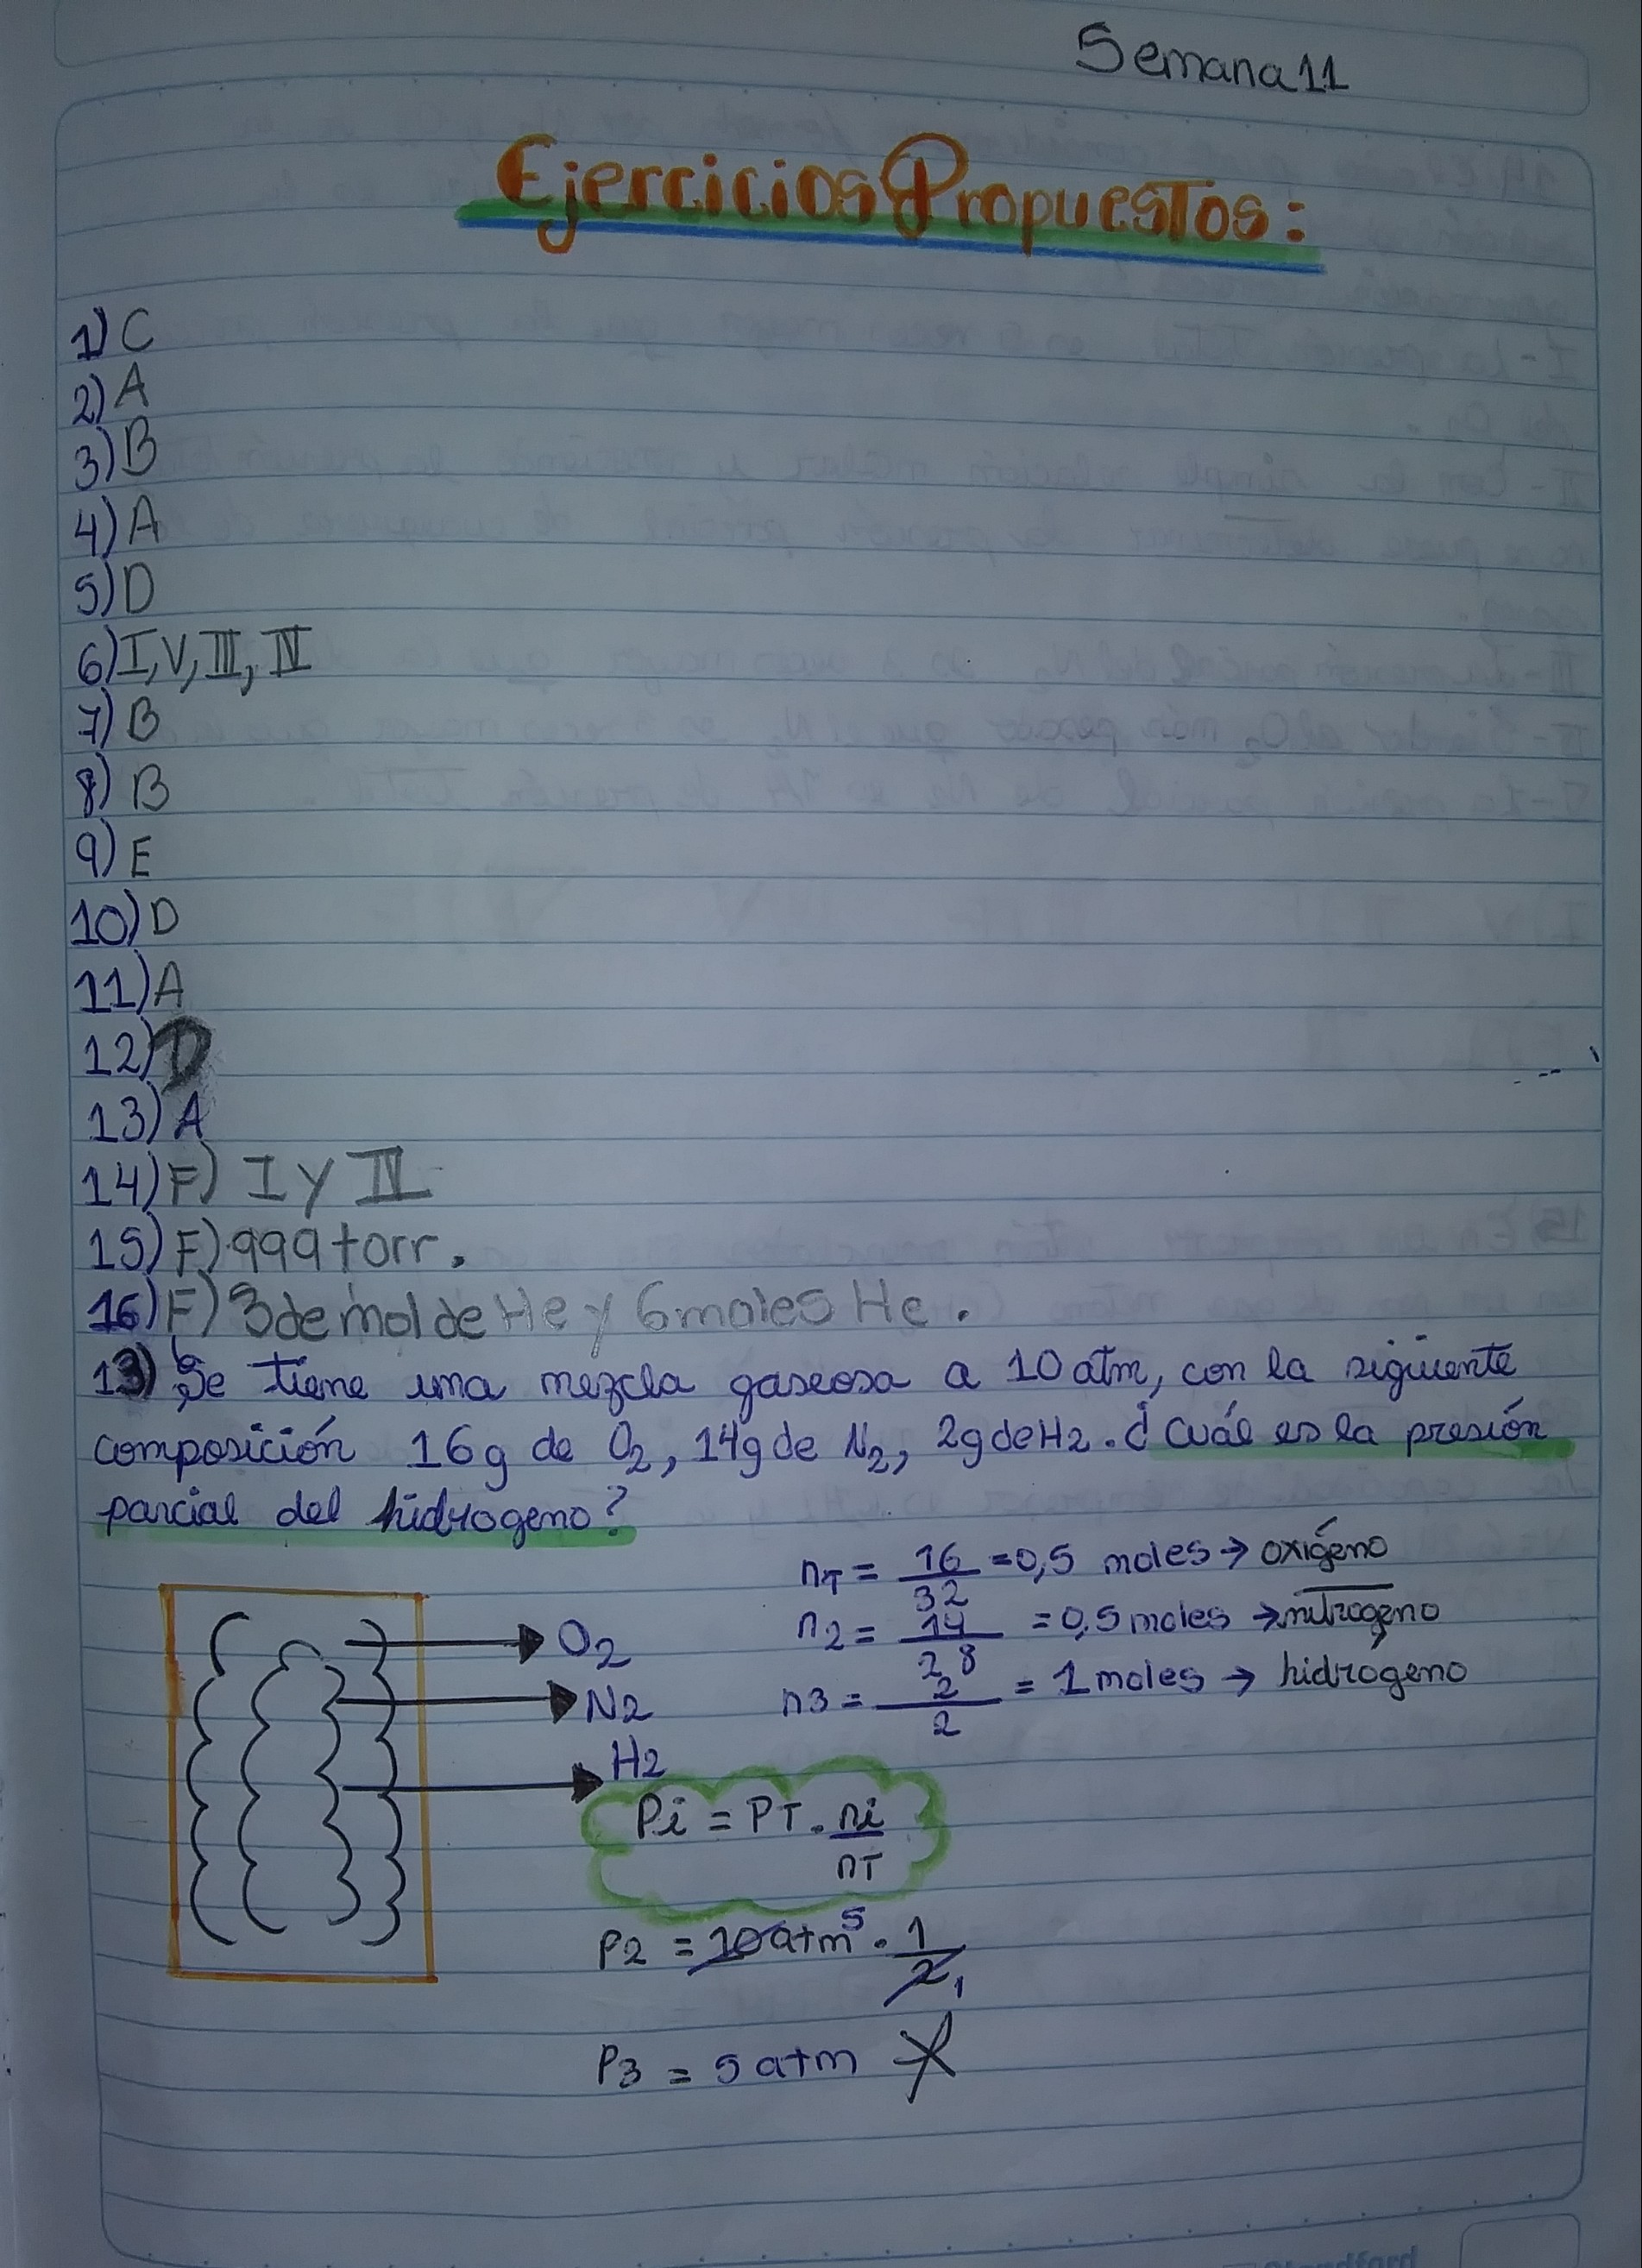 Semana 11
Ejercicios Propuestos:
1) C
2) A
3) B
4) A
5) D
6) I, V, III, IV
7) B
8) B
9) E
10) D
11) A
12) D
13) A
14) F) I y IV
15) F) 999 torr.
16) F) 3 de mol de He y 6 moles He.
13) Se tiene una mezcla gaseosa a 10 atm, con la siguiente
composición 16g de O2, 14g de N2, 2g de H2. ¿Cuál es la presión
parcial del hidrogeno?
nT = 16/32 = 0,5 moles → oxígeno
n2 = 14/28 = 0,5 moles → nitrógeno
n3 = 2/2 = 1 moles → hidrógeno
O2
N2
H2
Pi = PT . ni/nT
P2 = 10 atm 5 . 1/2 1
P3 = 5 atm